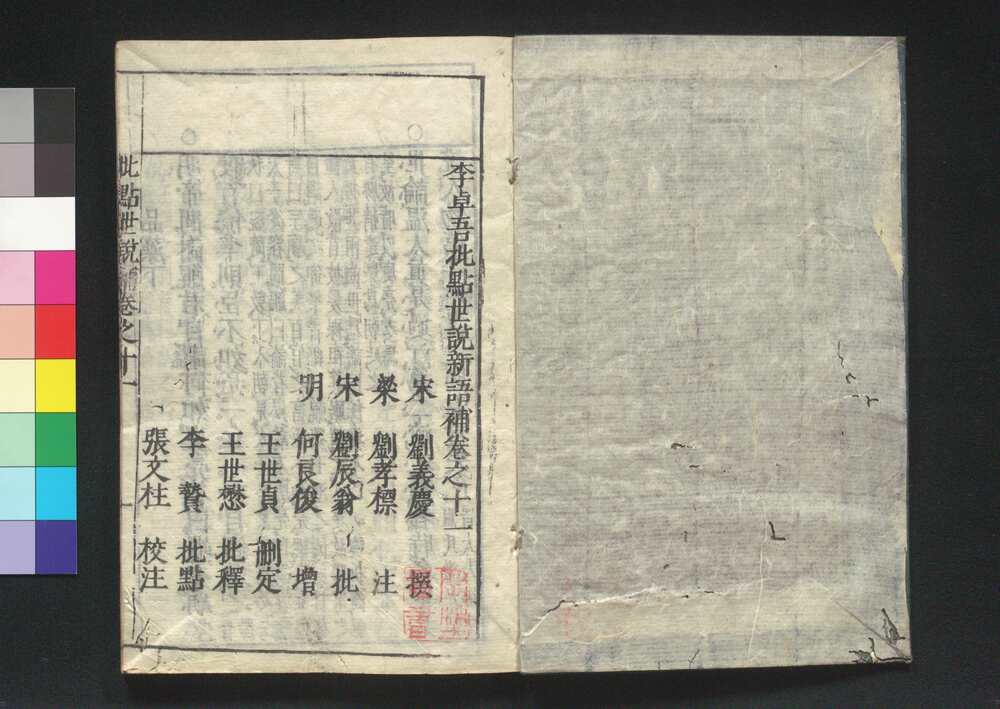 李卓吾批點世說新語補卷之十一
宋 劉義慶 撰
梁 劉孝標 注
宋 劉辰翁 批
明 何良俊 增
王世貞 刪定
王世懋 批釋
李 贄 批點
張文柱 校注
批點世說補卷之十一 一